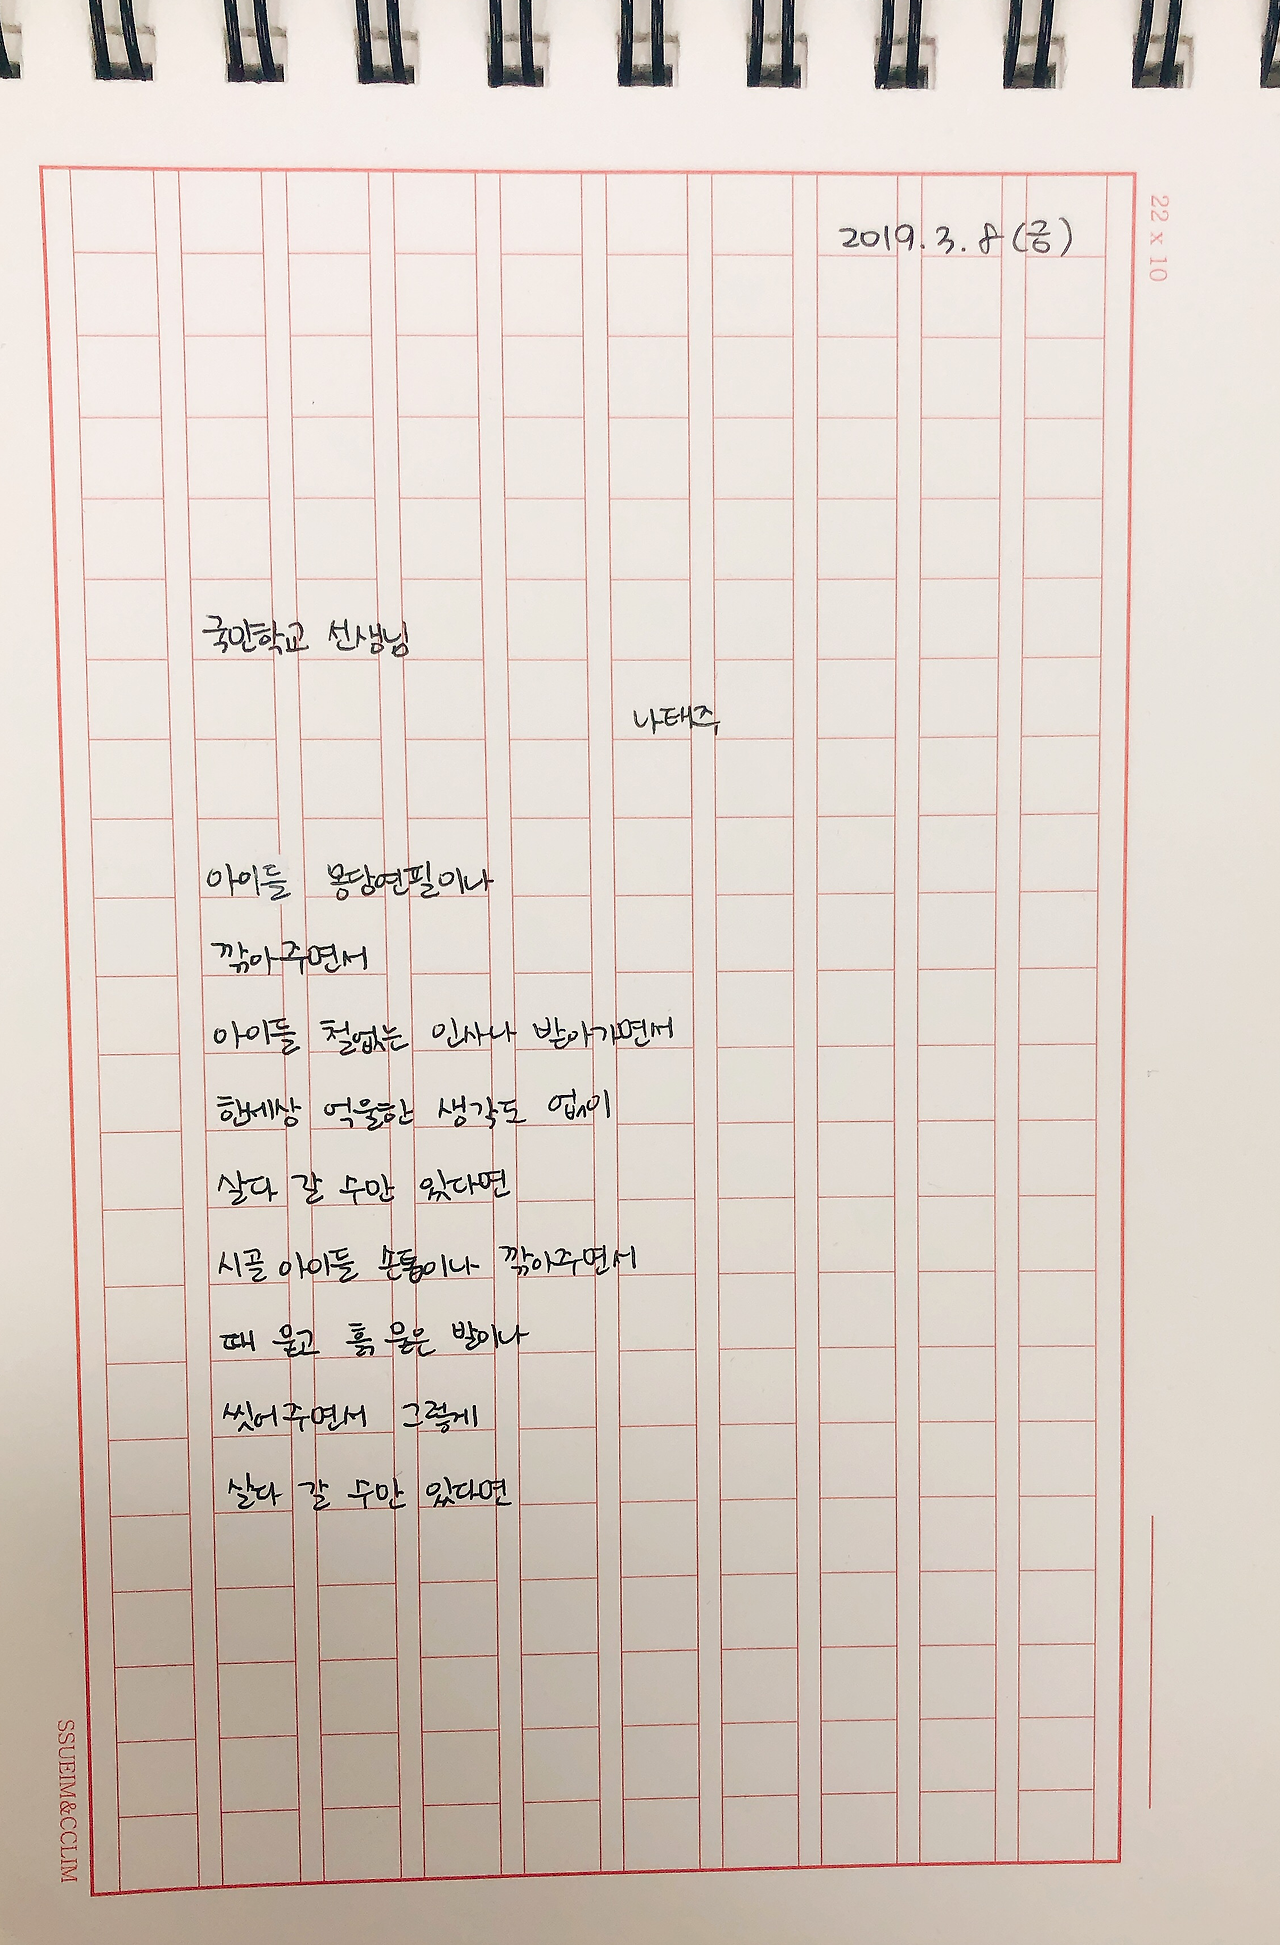 22 x 10
2019. 3. 8 (금)
국민학교 선생님
나태주
아이들 몽당연필이나
깎아주면서
아이들 철없는 인사나 받아가면서
한세상 억울한 생각도 없이
살다 갈 수만 있다면
시골 아이들 손톱이나 깎아주면서
때 묻고 흙 묻은 발이나
씻어주면서 그렇게
살다 갈 수만 있다면
SSUEIM&CCLIM